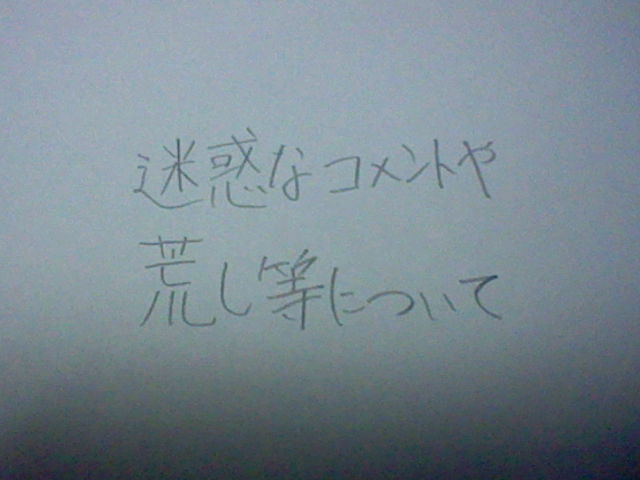 迷惑なコメントや
荒し等について